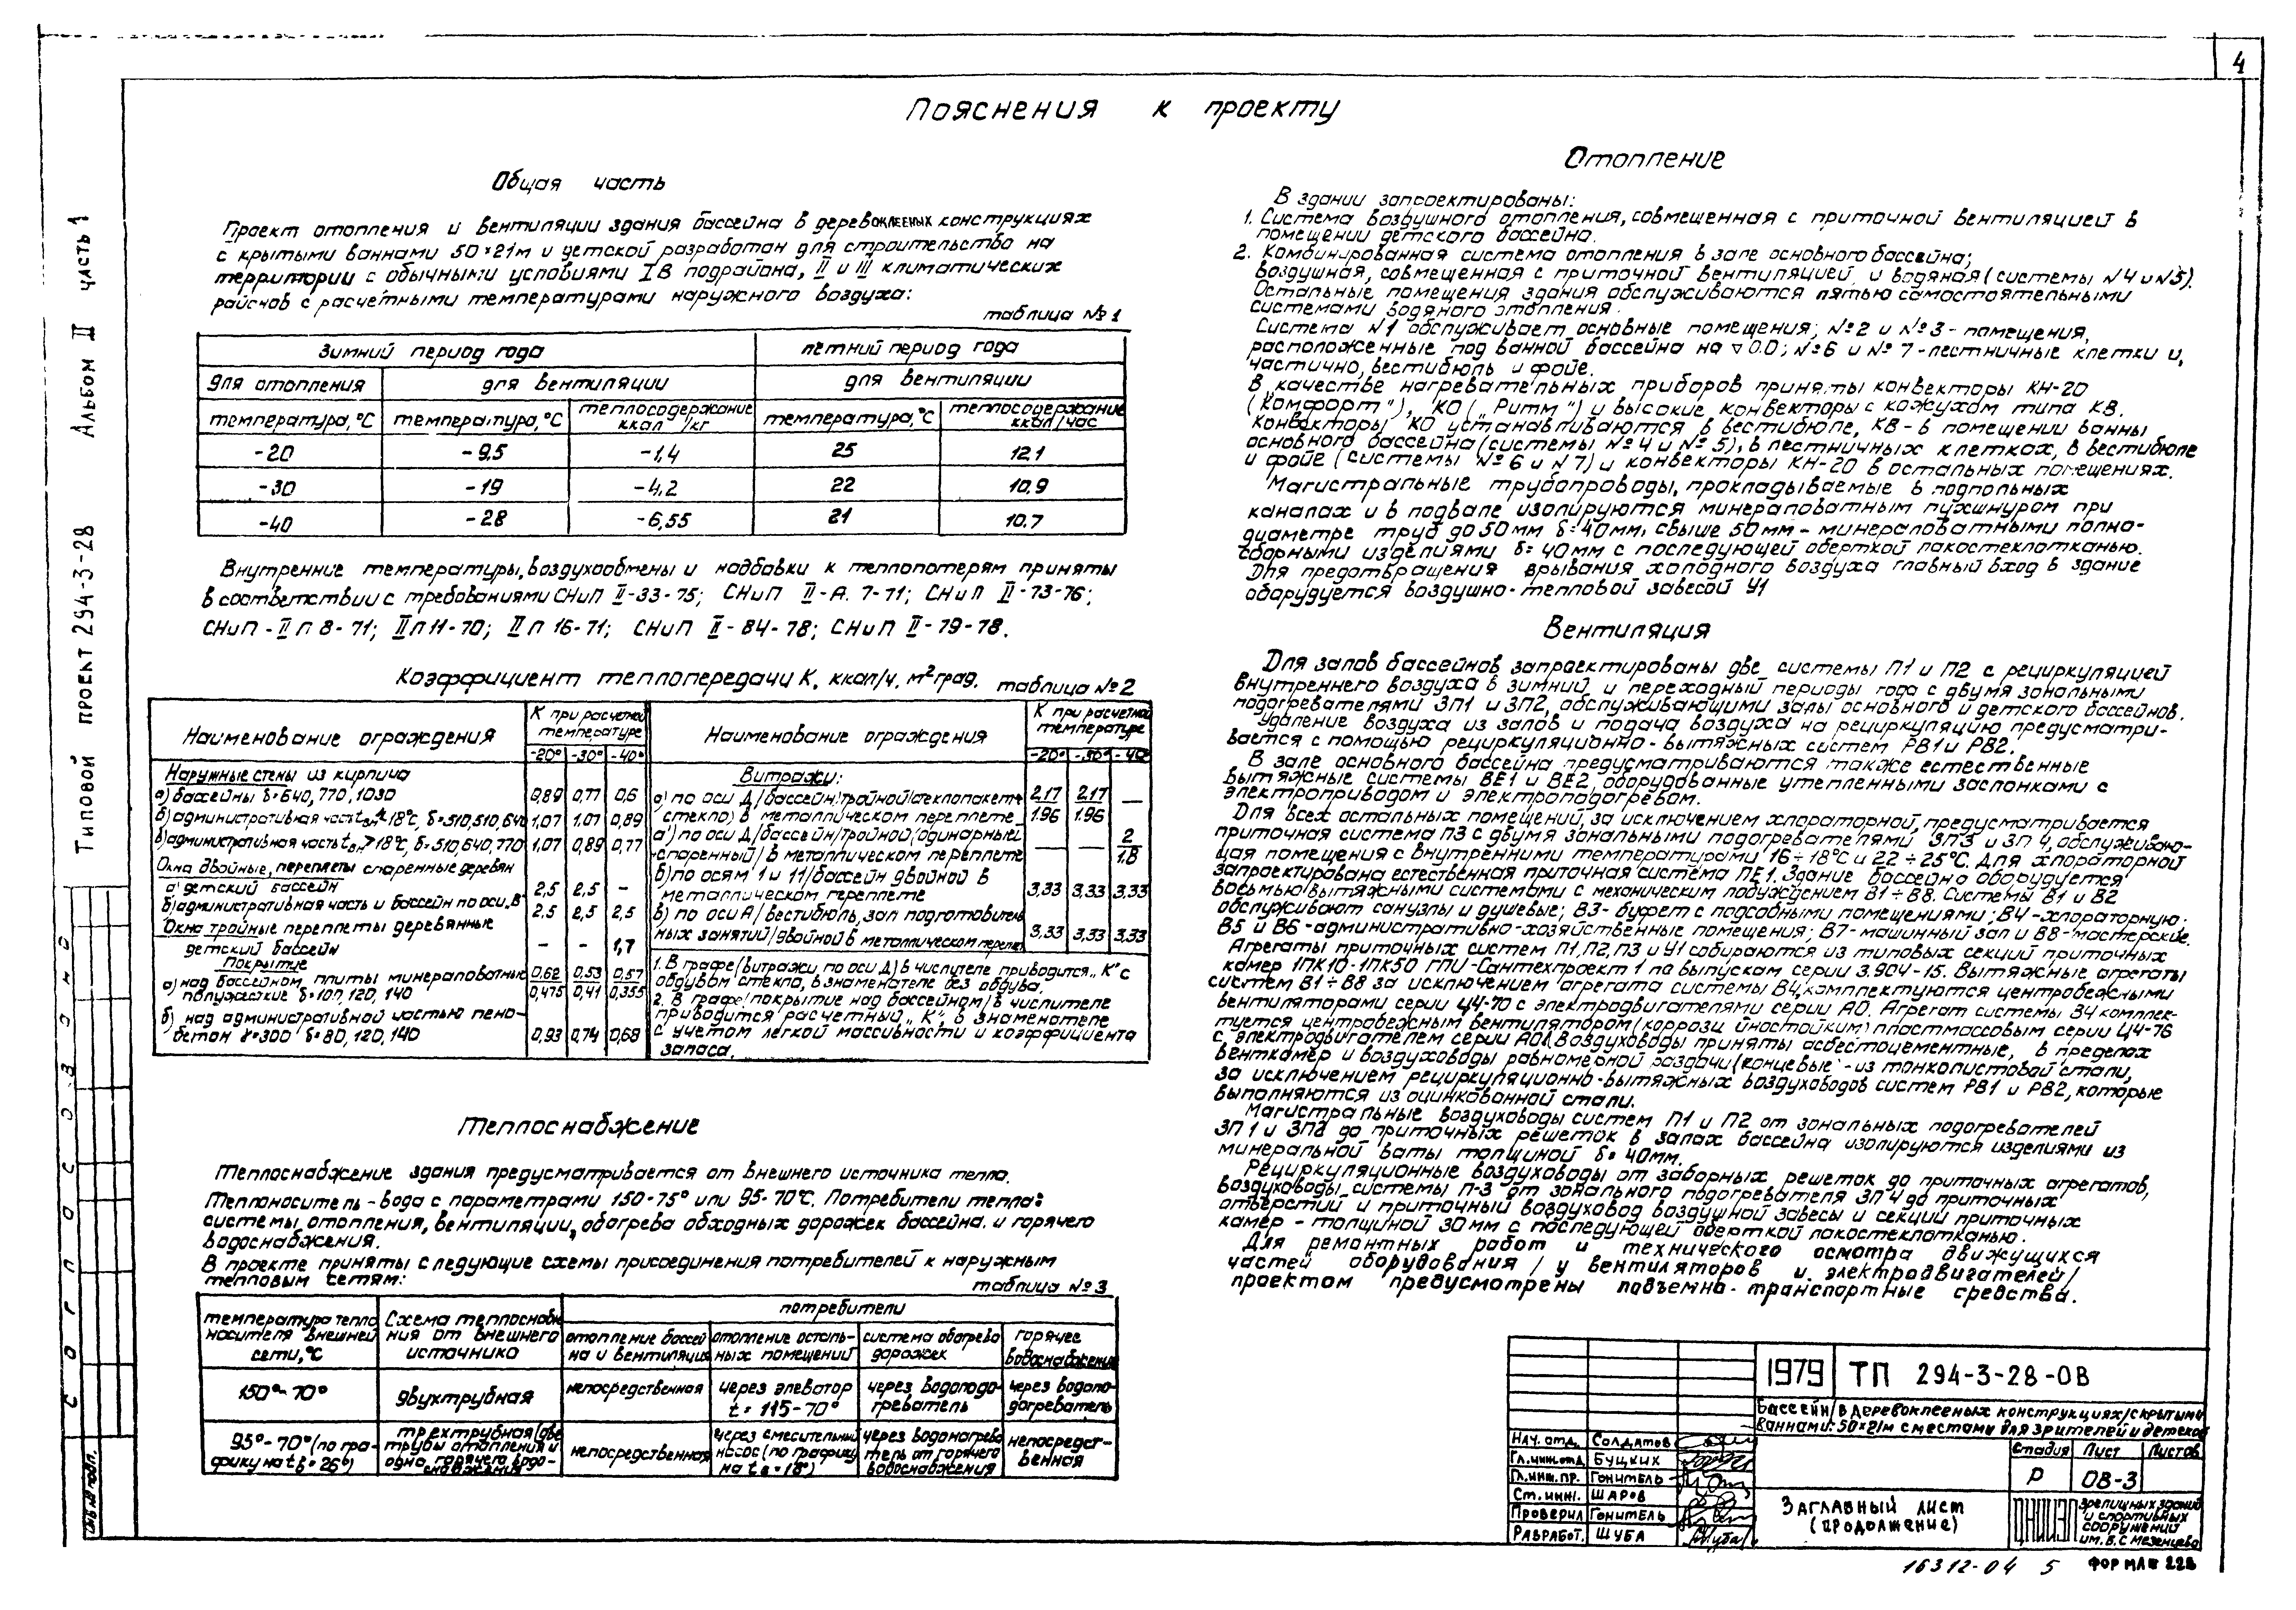 4
Пояснения к проекту
Типовой проект 294-3-28 Альбом II часть 1
Согласовано
Общая часть
Проект отопления и вентиляции здания бассейна в деревоклееных конструкциях
с крытыми ваннами 50×21м и детской разработан для строительства на
территории с обычными условиями IВ подрайона, II и III климатических
районов с расчетными температурами наружного воздуха:
таблица №1
зимний период года | летний период года
для отопления | для вентиляции | для вентиляции
температура,°С | температура,°С | теплосодержание ккал/кг | температура,°С | теплосодержание ккал/час
-20 | -9.5 | -1,4 | 25 | 12.1
-30 | -19 | -4.2 | 22 | 10.9
-40 | -28 | -6,55 | 21 | 10.7
Внутренние температуры, воздухообмены и надбавки к теплопотерям приняты
в соответствии с требованиями СНиП II-33-75; СНиП II-А.7-71; СНиП II-73-76;
СНиП-II Л 8-71; II Л 11-70; II Л 16-71; СНиП II-84-78; СНиП II-79-78.
Коэффициент теплопередачи К, ккал/ч. м² град. таблица №2
Наименование ограждения | К при расчетной температуре | Наименование ограждения | К при расчетной температуре
-20° | -30° | -40° | -20° | -30° | -40°
Наружные стены из кирпича
а) бассейны δ=640, 770, 1030 | 0,89 | 0,77 | 0,6
б) административная часть tвн<18°С, δ=510,510,640 | 1,07 | 1,07 | 0,89
в) административная часть tвн>18°С, δ=510,640,770 | 1,07 | 0,89 | 0,77
Окна двойные, переплеты спаренные деревян
а) детский бассейн | 2,5 | 2,5 | -
б) административная часть и бассейн по оси „В" | 2.5 | 2,5 | 2,5
Окна тройные переплеты деревянные
детский бассейн | - | - | 1,7
Покрытие
а) над бассейном, плиты минераловатные | 0.62 | 0.53 | 0.57
полужесткие δ=100, 120, 140 | 0,475 | 0,41 | 0,355
б) над административной частью пено-
бетон γ=300 δ=80, 120, 140 | 0,93 | 0,74 | 0,68
Витражи:
а) по оси Д/бассейн/тройной/стеклопакет+ | 2.17 | 2.17 | —
стекло) в металлическом переплете | 1.96 | 1.96
а') по оси Д/бассейн/тройной/одинарный | — | — | 2
спаренный/ в металлическом переплете | 1.8
б) по осям 1 и 11/бассейн двойной в
металлическом переплете | 3,33 | 3,33 | 3,33
в) по оси А/вестибюль, зал подготовитель
ных занятий/двойной в металлическом перепле | 3,33 | 3,33 | 3,33
1. В графе (витражи, по оси Д) в числителе приводится „К" с
обдувом стекла, в знаменателе без обдува.
2. В графе/покрытие над бассейном/в числителе
приводится расчетный „К", в знаменателе
с учетом легкой массивности и коэффициента
запаса.
Теплоснабжение
Теплоснабжение здания предусматривается от внешнего источника тепла.
Теплоноситель-вода с параметрами 150-75° или 95-70°С. Потребители тепла:
системы отопления, вентиляции, обогрева обходных дорожек бассейна и горячего
водоснабжения.
В проекте приняты следующие схемы присоединения потребителей к наружным
тепловым сетям:
таблица №3
температура тепло носителя внешней сети,°С | Схема теплоснабже ния от внешнего источника | потребители
отопление бассей на и вентиляция | отопление осталь- ных помещений | система обогрева дорожек | горячее водоснабжение
150°-70° | двухтрубная | непосредственная | через элеватор t=115-70° | через водоподо- греватель | через водопо- догреватель
95°-70° (по гра- фику на tв=26°) | трехтрубная (две трубы отопления и одна горячего водо- снабжения | непосредственная | через смесительный насос (по графику на tв=18°) | через водонагрева тель от горячего водоснабжения | непосредст- венная
Отопление
В здании запроектированы:
1. Система воздушного отопления, совмещенная с приточной вентиляцией в
помещении детского бассейна.
2. Комбинированная система отопления в зале основного бассейна;
воздушная, совмещенная с приточной вентиляцией и водяная (системы №4 и №5).
Остальные помещения здания обслуживаются пятью самостоятельными
системами водяного отопления.
Система №1 обслуживает основные помещения; №2 и №3 - помещения,
расположенные под ванной бассейна на ▽0.0; №6 и №7-лестничные клетки и,
частично, вестибюль и фойе.
В качестве нагревательных приборов приняты конвекторы КН-20
(„Комфорт"), КО („Ритм") и высокие конвекторы с кожухом типа КВ.
Конвекторы КО устанавливаются в вестибюле, КВ-в помещении ванны
основного бассейна (системы №4 и №5), в лестничных клетках, в вестибюле
и фойе (системы №6 и №7) и конвекторы КН-20 в остальных помещениях.
Магистральные трубопроводы, прокладываемые в подпольных
каналах и в подвале изолируются минераловатным пухшнуром при
диаметре труб до 50мм δ=40мм, свыше 50мм - минераловатными полно-
сборными изделиями δ=40мм с последующей оберткой лакостеклотканью.
Для предотвращения врывания холодного воздуха главный вход в здание
оборудуется воздушно-тепловой завесой У1
Вентиляция
Для залов бассейнов запроектированы две системы П1 и П2 с рециркуляцией
внутреннего воздуха в зимний и переходный периоды года с двумя зональными
подогревателями ЗП1 и ЗП2, обслуживающими залы основного и детского бассейнов.
Удаление воздуха из залов и подача воздуха на рециркуляцию предусматри-
вается с помощью рециркуляционно-вытяжных систем РВ1 и РВ2.
В зале основного бассейна предусматриваются также естественные
вытяжные системы ВЕ1 и ВЕ2, оборудованные утепленными заслонками с
электроприводом и электроподогревом.
Для всех остальных помещений, за исключением хлораторной, предусматривается
приточная система П3 с двумя зональными подогревателями ЗП3 и ЗП4, обслуживаю-
щая помещения с внутренними температурами 16÷18°С и 22÷25°С. Для хлораторной
запроектирована естественная приточная система ПЕ1. Здание бассейна оборудуется
восьмью вытяжными системами с механическим побуждением В1÷В8. Системы В1 и В2
обслуживают санузлы и душевые; В3-буфет с подсобными помещениями; В4-хлораторную;
В5 и В6-административно-хозяйственные помещения; В7-машинный зал и В8-мастерские.
Агрегаты приточных систем П1,П2,П3 и У1 собираются из типовых секций приточных
камер 1ПК10-1ПК50 ГПИ-Сантехпроект 1 по выпускам серии 3.904-15. Вытяжные агрегаты
систем В1÷В8 за исключением агрегата системы В4, комплектуются центробежными
вентиляторами серии Ц4-70 с электродвигателями серии АО. Агрегат системы В4 комплек-
туется центробежным вентилятором (коррози йностойким) пластмассовым серии Ц4-76
с электродвигателем серии АО. Воздуховоды приняты асбестоцементные, в пределах
венткамер и воздуховоды равномерной раздачи (концевые)-из тонколистовой стали,
за исключением рециркуляционно-вытяжных воздуховодов систем РВ1 и РВ2, которые
выполняются из оцинкованной стали.
Магистральные воздуховоды систем П1 и П2 от зональных подогревателей
ЗП1 и ЗП2 до приточных решеток в залах бассейна изолируются изделиями из
минеральной ваты толщиной δ=40мм.
Рециркуляционные воздуховоды от заборных решеток до приточных агрегатов,
воздуховоды системы П-3 от зонального подогревателя ЗП4 до приточных
отверстий и приточный воздуховод воздушной завесы и секций приточных
камер - толщиной 30мм с последующей оберткой лакостеклотканью.
Для ремонтных работ и технического осмотра движущихся
частей оборудования /у вентиляторов и электродвигателей/
проектом предусмотрены подъемно-транспортные средства.
1979 | ТП 294-3-28-ОВ
Бассейн/в деревоклееных конструкциях/скрытыми
ваннами: 50×21м с местами для зрителей и детской
Нач. отд. | Солдатов
Гл.инж.отд. | Буцких
Гл.инж.пр. | Гонитель
Ст.инж. | Шаров
Проверил | Гонитель
Разработ. | Шуба
Стадия | Лист | Листов
Р | ОВ-3
Заглавный лист
(продолжение)
ЦНИИЭП
зрелищных зданий
и спортивных
сооружений
им. Б.С. Мезенцева
Инв.№ подл.
16312-04 5 Формат 22В